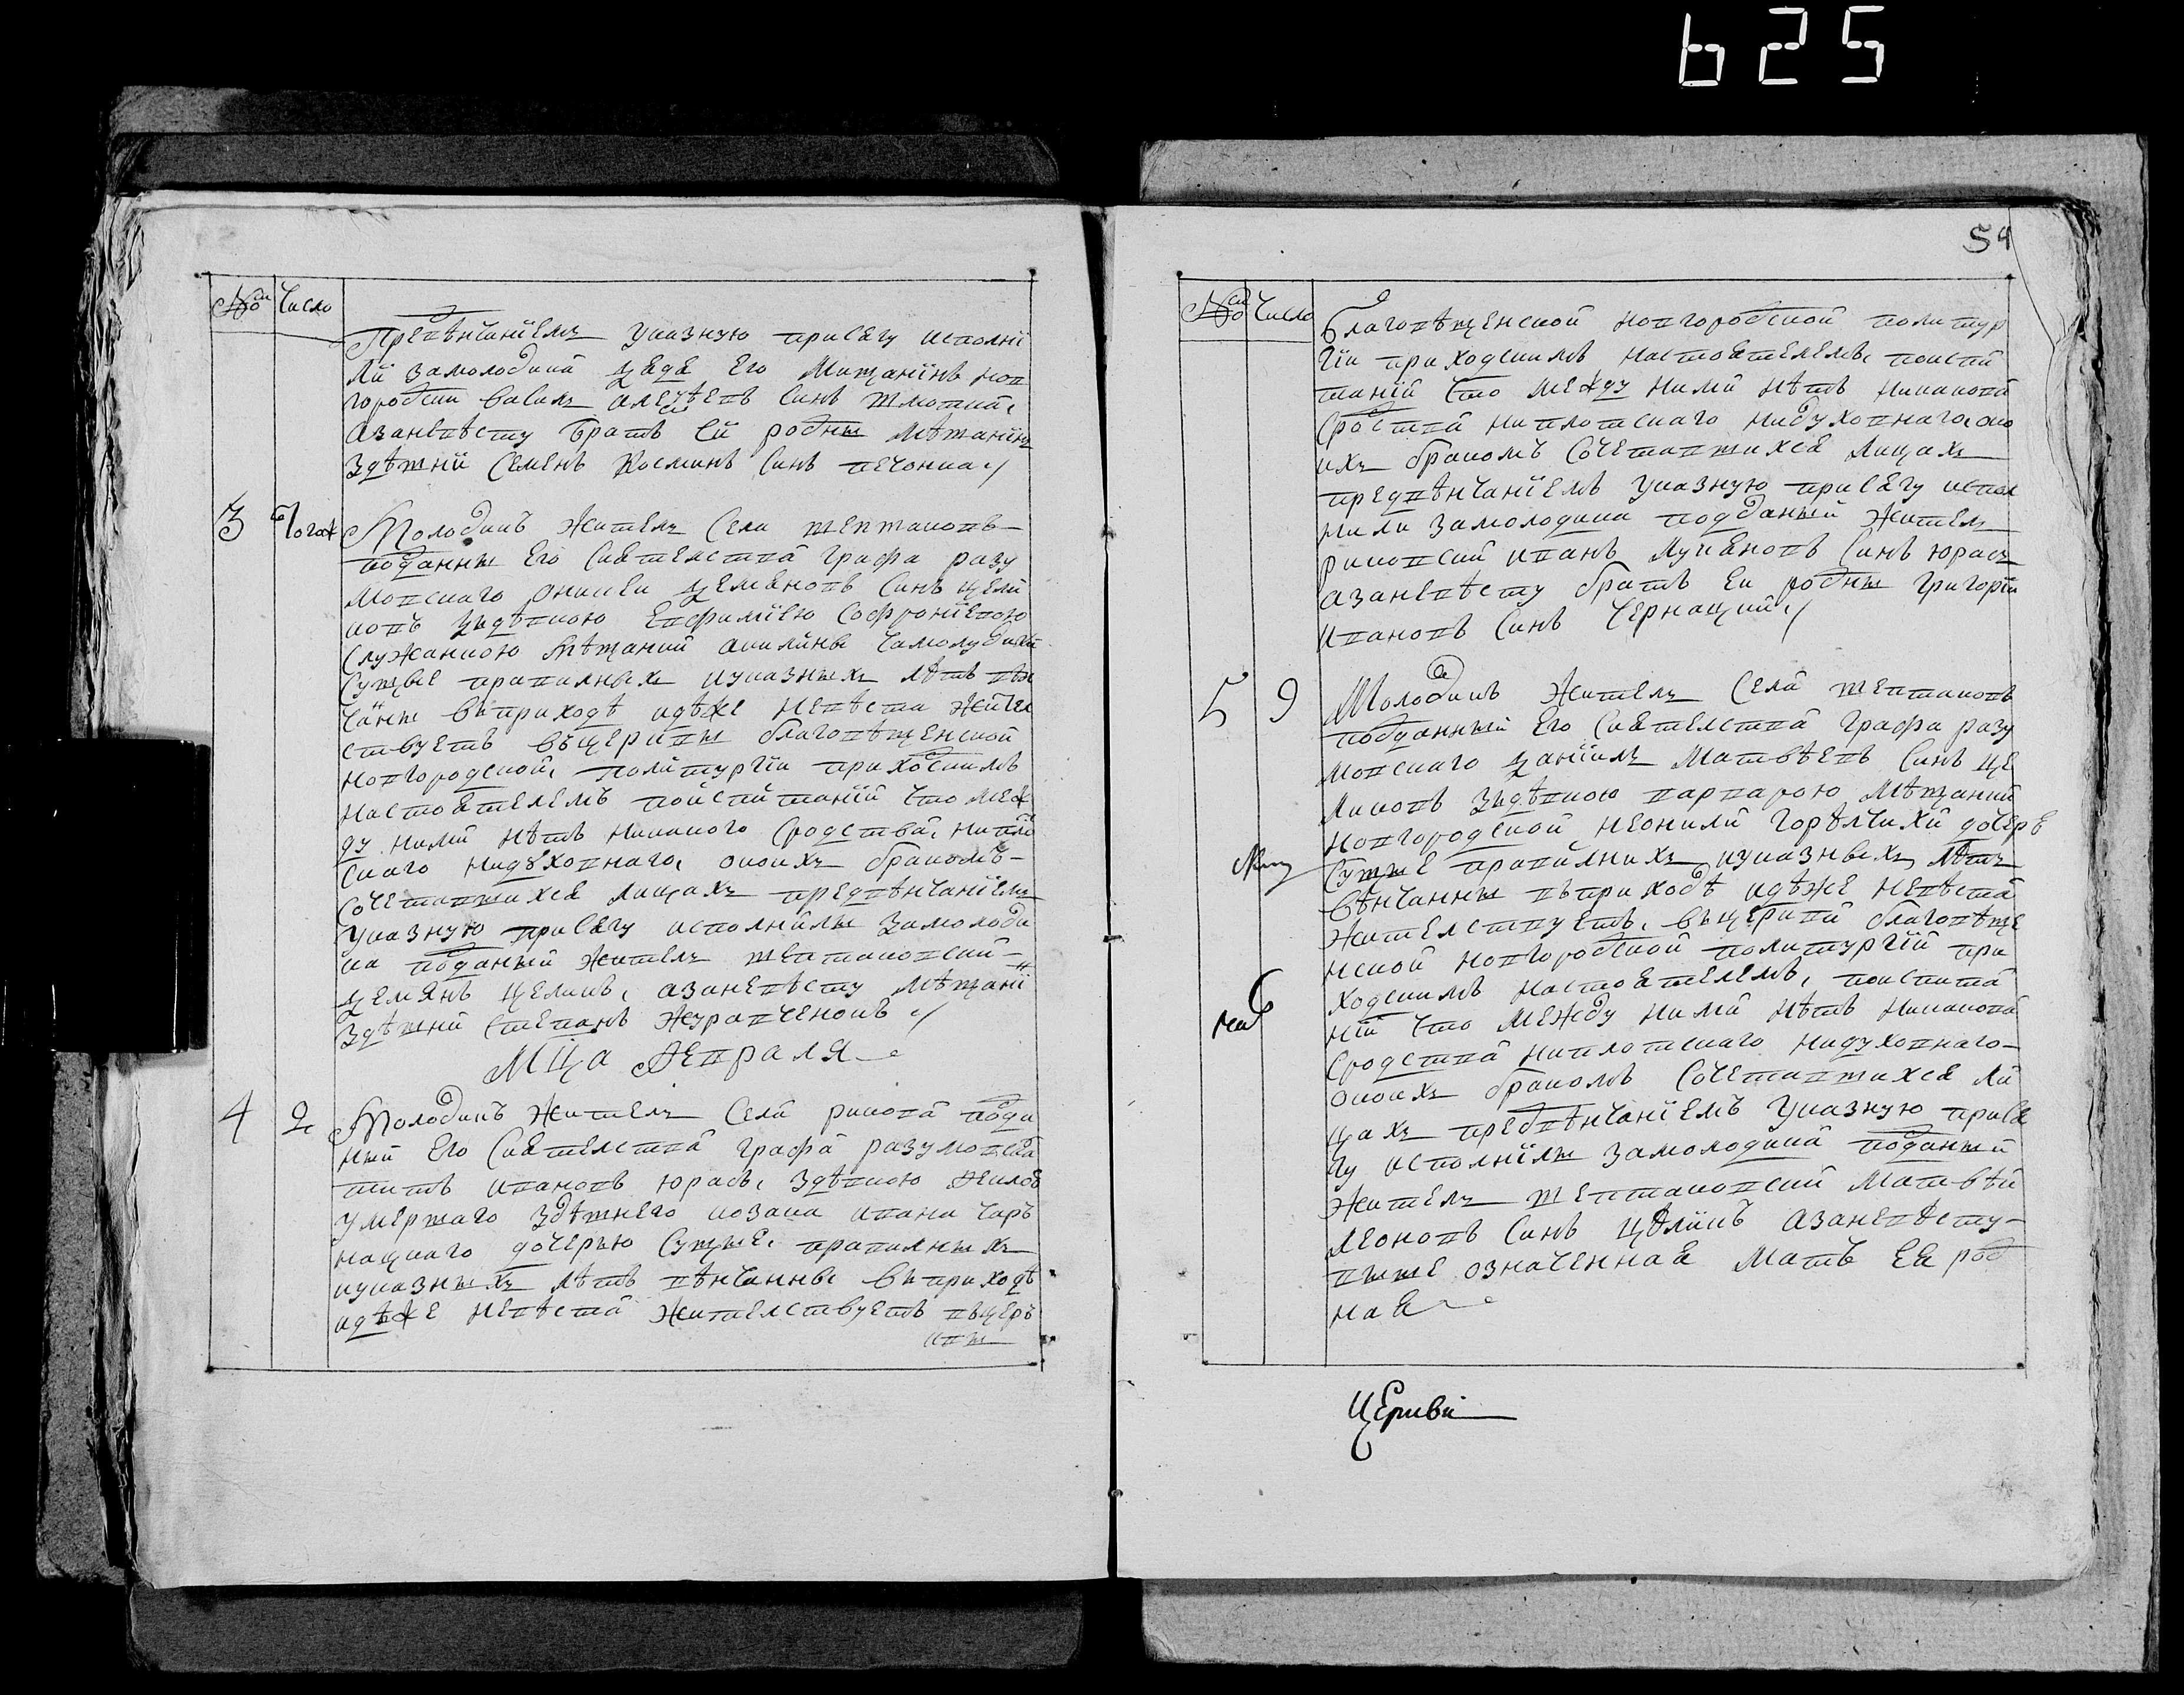 625
54
№ Число
Предвѣнчаніемъ указную присягу исполни
ли замолодика дядя его Мищанінъ нов
городскій Василь Алексѣевъ синъ
азаневѣсту братъ ей родны мѣщанінъ
здѣшній Семенъ Косминъ синъ печонка
3 Тогож Молодикъ житель села шептаковъ
подданны его сиятелства графа разу
мовскаго Онисей Демяновъ синъ цели
ковъ здѣвкою Евфиміею Софроніевою
служанкою мѣщанки акилины
сущые правилныхъ иуказныхъ лѣтъ вѣн
чаны въ приходѣ идѣже невѣста жител
ствуетъ въцеркви благовѣщенской
новгородской, политургіи приходскимъ
настоятелемъ поиспитаніи что меж
ду ними нѣтъ никакого сродства, ниплот
скаго нидуховнаго, окоихъ бракомъ
сочетавшихся лицахъ предвѣнчаніемъ
указную присягу исполнилы замолоди
ка подданый житель шептаковскій
Демянъ целикъ, азаневѣсту мѣщани
здѣшній Степанъ Журавченокъ
Мца Февраля
4 2 Молодикъ житель села рикова подда
ный его сиятелства графа разумовска
титъ ивановъ юрасъ, здѣвкою
умершаго здѣшнего козака ивана чер
нацкаго дочерью сущые, правилныхъ
иуказныхъ лѣтъ вѣнчанны въ приходѣ
идѣже невѣста жителствуетъ въцер
квы
№ Число
Благовѣщенской новгородской политур
гіи приходскимъ настоятелемъ, поиспи
таніи что между ними нѣтъ никакова
сродства ниплотскаго нидуховнаго, око
ихъ бракомъ сочетавшихся лицахъ
предвѣнчаніемъ указную присягу испол
нили замолодика подданый житель
риковскій иванъ Лукяновъ синъ юрасъ
азаневѣсту братъ еи родны григорій
ивановъ синъ чернацкий
5 9 Молодикъ житель села шептаковъ
подданный его сиятелства графа разу
мовскаго Даніилъ Матвѣевъ синъ це
ликовъ здѣвкою варварою мѣщанки
новгородской неонили горѣлчихи дочерѣ
сущые правилнихъ иуказныхъ лѣтъ
вѣнчанны въприходѣ идѣже невѣста
жителствуетъ, въцеркви благовѣще
нской новгородской политургіи при
ходскимъ настоятелемъ, поиспита
ніи что между ними нѣтъ никакова
сродства ниплотскаго нидуховнаго
окоихъ бракомъ сочетавшихся ли
цахъ предвѣнчаніемъ указную прися
гу исполнілы замолодика подданый
житель шептаковскій Матвѣй
леоновъ синъ цѣликъ азаневѣсту
выше означенная мать ея род
ная
церкви